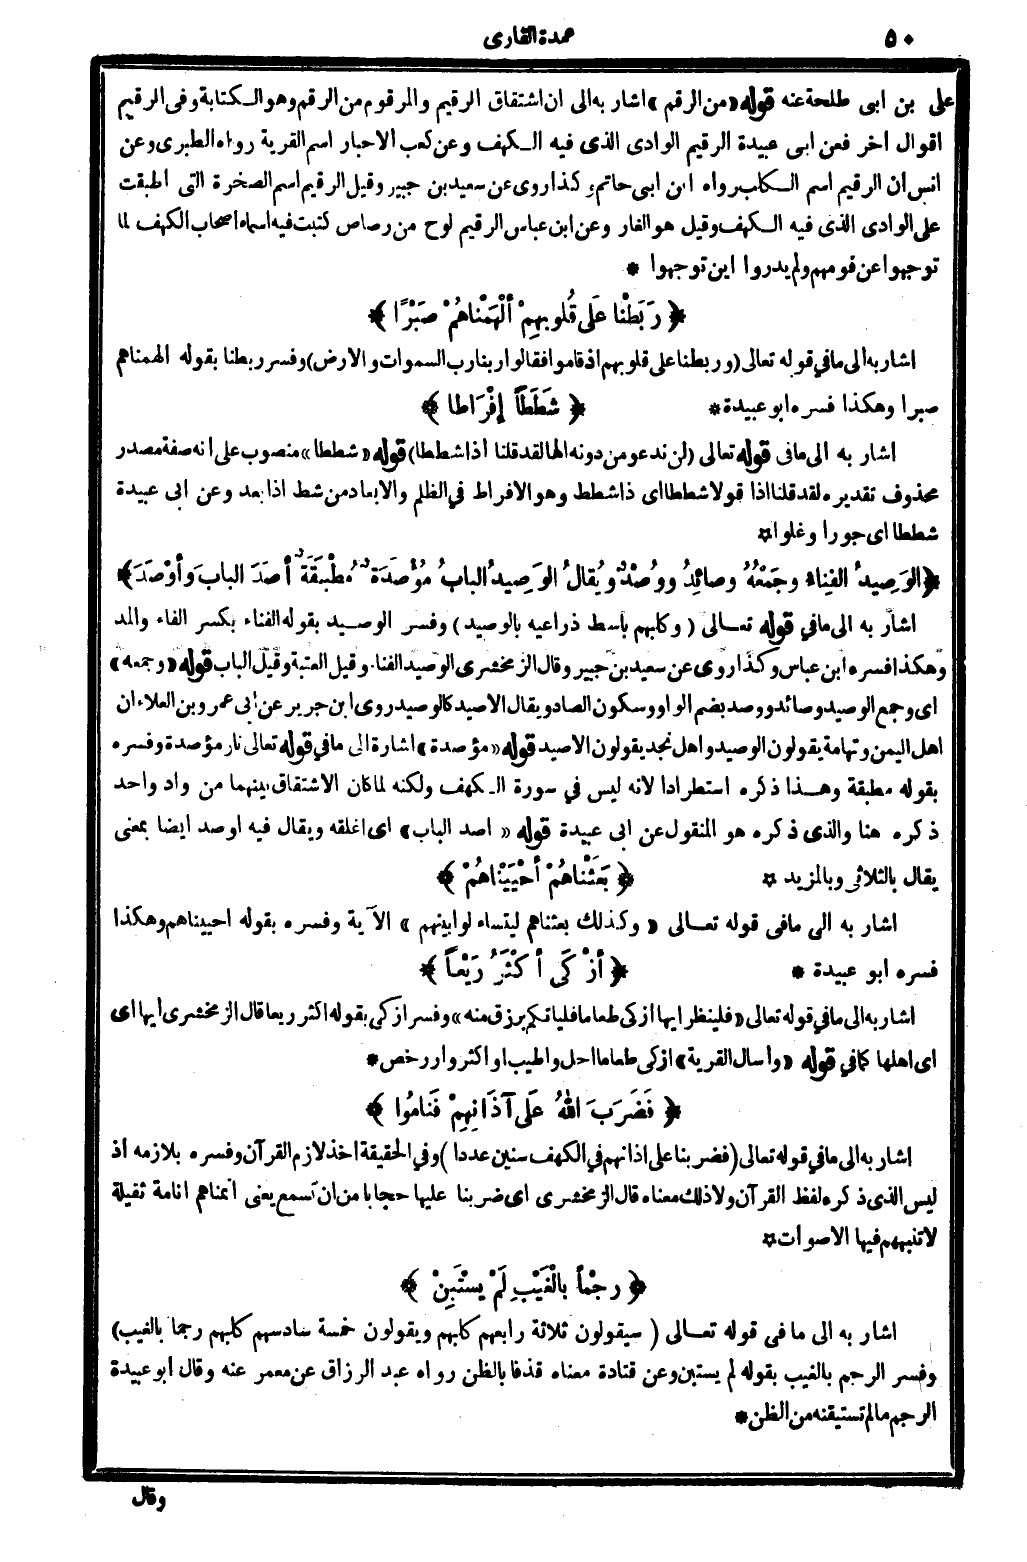 ٥٠
عمدة القارى
على بن ابى طلحة عنه قوله «من الرقم» اشار به الى ان اشتقاق الرقيم والمرقوم من الرقم وهو الكتابة وفى الرقيم
اقوال اخر فعن ابى عبيدة الرقيم الوادى الذى فيه الكهف وعن كعب الاحبار اسم القرية رواه الطبرى وعن
انس ان الرقيم اسم الكلب رواه ابن ابى حاتم وكذا روى عن سعيد بن جبير وقيل الرقيم اسم الصخرة التى اطبقت
على الوادى الذى فيه الكهف وقيل هو الغار وعن ابن عباس الرقيم لوح من رصاص كتبت فيه اسماء اصحاب الكهف لما
توجهوا عن قومهم ولم يدروا اين توجهوا *
﴿ رَبَطْنَا عَلَى قُلوبِهِمْ أَلْهَمْنَاهُمْ صَبْرًا ﴾
اشار به الى ما فى قوله تعالى (وربطنا على قلوبهم اذ قاموا فقالوا ربنا رب السموات والارض) وفسر ربطنا بقوله الهمناهم
صبرا وهكذا فسره ابو عبيدة *
﴿ شَطَطاً إِفْرَاطا ﴾
اشار به الى ما فى قوله تعالى (لن ندعو من دونه الها لقد قلنا اذا شططا) قوله «شططا» منصوب على انه صفة مصدر
محذوف تقديره لقد قلنا اذا قولا شططا اى ذا شطط وهو الافراط في الظلم والابعاد من شط اذا بعد وعن ابى عبيدة
شططا اى جورا وغلوا ☆
﴿الوَصِيدُ الفِناءُ وجَمْعُهُ وصائِدُ ووُصُدٌ ويُقالُ الوَصِيدُ البابُ مُؤْصَدَةٌ مُطْبَقَةٌ أصَدَ البابَ وَأوْصَدَ﴾
اشار به الى ما في قوله تعالى (وكلبهم باسط ذراعيه بالوصيد) وفسر الوصيد بقوله الفناء بكسر الفاء والمد
وهكذا فسره ابن عباس وكذا روى عن سعيد بن جبير وقال الزمخشرى الوصيد الفناء وقيل العتبة وقيل الباب قوله «وجمعه»
اى وجمع الوصيد وصائد ووصد بضم الواو وسكون الصاد ويقال الاصيد كالوصيد روى ابن جرير عن ابى عمرو بن العلاء ان
اهل اليمن وتهامة يقولون الوصيد واهل نجد يقولون الاصيد قوله «مؤصدة» اشارة الى ما في قوله تعالى نار مؤصدة وفسره
بقوله مطبقة وهذا ذكره استطرادا لانه ليس في سورة الكهف ولكنه لما كان الاشتقاق بينهما من واد واحد
ذكره هنا والذى ذكره هو المنقول عن ابى عبيدة قوله «اصد الباب» اى اغلقه ويقال فيه اوصد ايضا بمعنى
يقال بالثلاثى وبالمزيد ☆
﴿ بَعَثْناهُمْ أَحْيَيْناهُمْ ﴾
اشار به الى ما فى قوله تعالى «وكذلك بعثناهم ليتساءلوا بينهم» الآية وفسره بقوله احييناهم وهكذا
فسره ابو عبيدة *
﴿ أَزْكَى أكْثَرُ رَيْعاً ﴾
اشار به الى ما في قوله تعالى «فلينظر ايها ازكى طعاما فلياتكم برزق منه» وفسر ازكى بقوله اكثر ريعا قال الزمخشرى ايها اى
اى اهلها كما في قوله «واسال القرية» ازكى طعاما احل واطيب او اكثر وارخص *
﴿ فَضَرَبَ اللهُ عَلَى آذَانِهِمْ فَنَامُوا ﴾
اشار به الى ما في قوله تعالى (فضربنا على اذانهم في الكهف سنين عددا) وفي الحقيقة اخذ لازم القرآن وفسره بلازمه اذ
ليس الذى ذكره لفظ القرآن ولا ذلك معناه قال الزمخشرى اى ضربنا عليها حجابا من ان تسمع يعنى انمناهم انامة ثقيلة
لا تنبههم فيها الاصوات ☆
﴿ رجْماً بالْغَيْبِ لَمْ يسْتَبِنْ ﴾
اشار به الى ما فى قوله تعالى (سيقولون ثلاثة رابعهم كلبهم ويقولون خمسة سادسهم كلبهم رجما بالغيب)
وفسر الرجم بالغيب بقوله لم يستبن وعن قتادة معناه قذفا بالظن رواه عبد الرزاق عن معمر عنه وقال ابو عبيدة
الرجم ما لم تستيقنه من الظن *
وقال